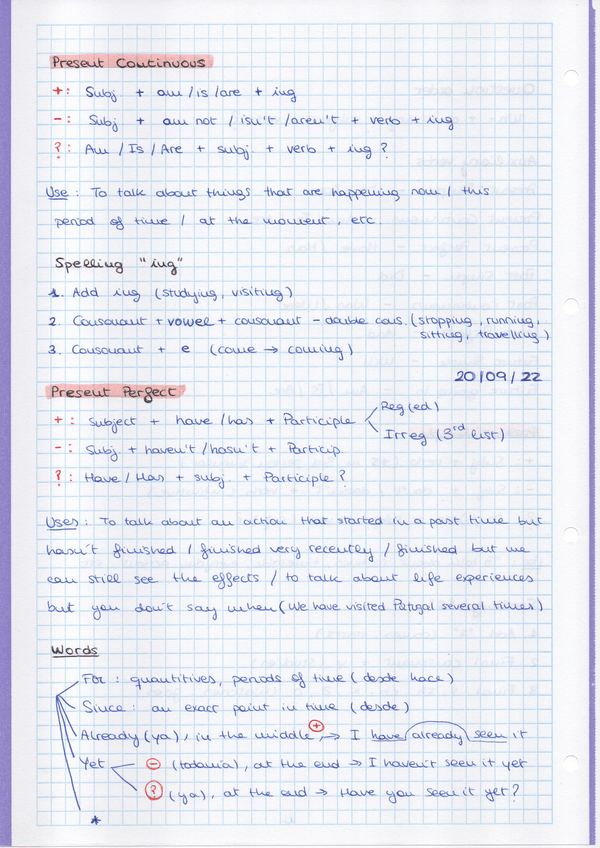 Present Continuous
+: Subj + am / is / are + ing
-: Subj + am not / isn't / aren't + verb + ing
?: Am / Is / Are + subj. + verb + ing?
Use: To talk about things that are happening now / this
period of time / at the moment, etc.
Spelling "ing"
1. Add ing (studying, visiting)
2. Consonant + vowel + consonant - double cons. (stopping, running,
sitting, travelling)
3. Consonant + e (come → coming)
20/09/22
Present Perfect
+: Subject + have / has + Participle
Reg (ed)
Irreg (3rd list)
-: Subj + haven't / hasn't + Particip.
?: Have / Has + subj. + Participle?
Uses: To talk about an action that started in a past time but
hasn't finished / finished very recently / finished but we
can still see the effects / to talk about life experiences
but you don't say when (We have visited Portugal several times)
Words
For: quantitives, periods of time (desde hace)
Since: an exact point in time (desde)
Already (ya), in the middle + → I have already seen it
Yet - (todavía), at the end → I haven't seen it yet
? (ya), at the end → Have you seen it yet?
*